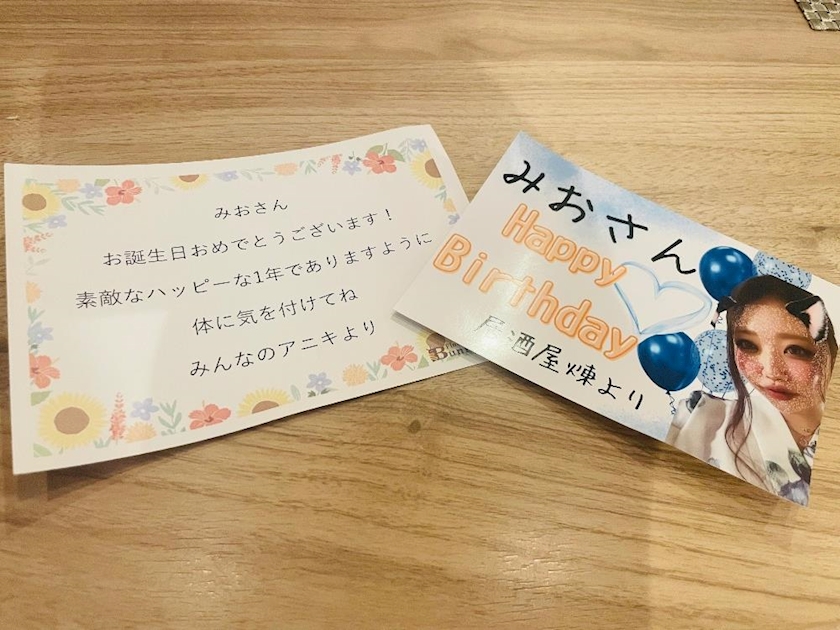 みおさん
お誕生日おめでとうございます！
素敵なハッピーな1年でありますように
体に気を付けてね
みんなのアニキより
みおさん
Happy
Birthday
居酒屋煉より